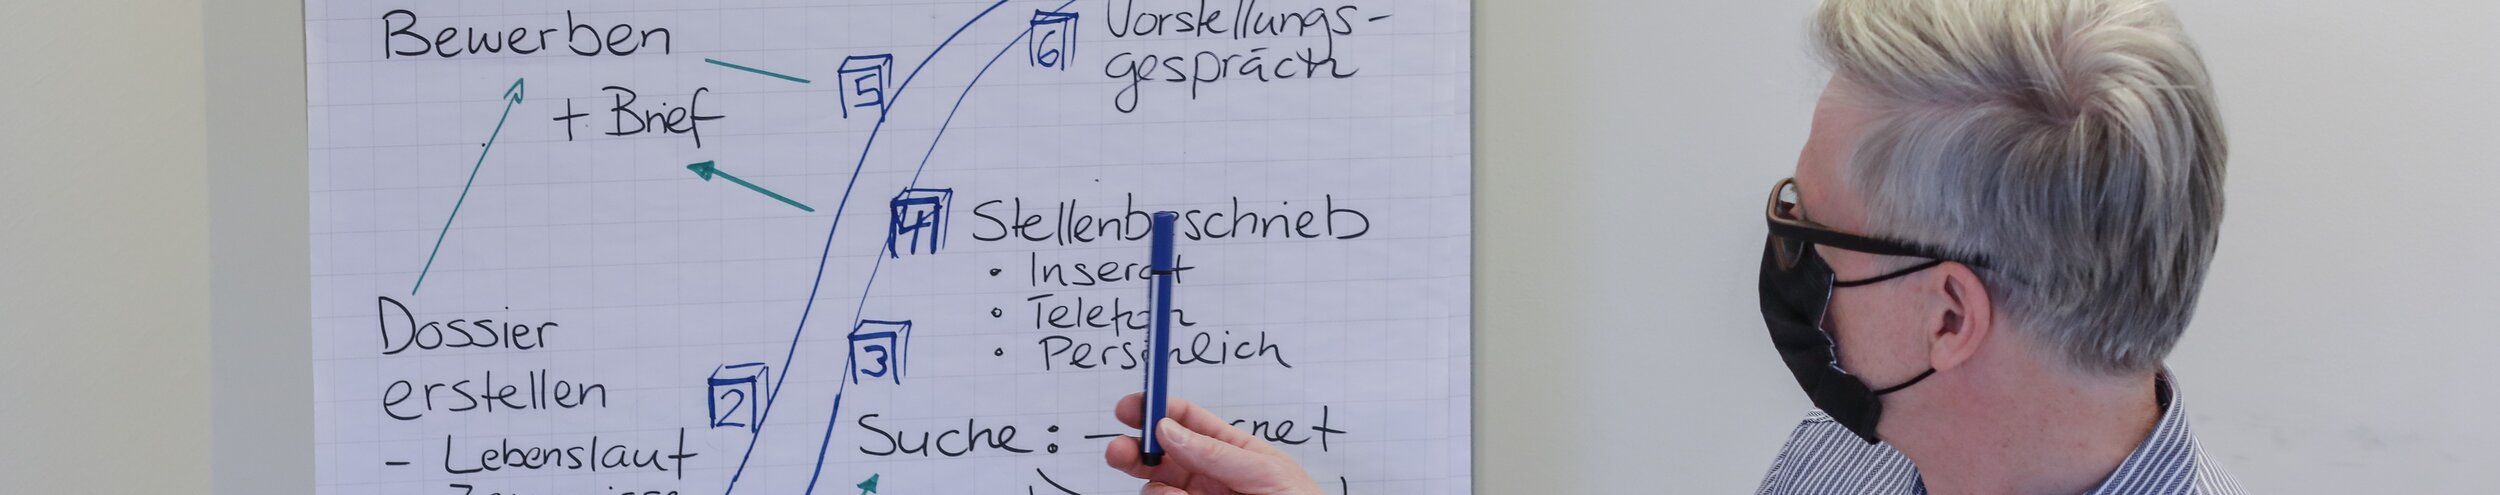 Bewerben
+ Brief
5
6
Vorstellungs-
gespräch
4
Stellenbeschrieb
• Inserat
• Telefon
• Persönlich
Dossier
erstellen
- Lebenslauf
2
3
Suche: -